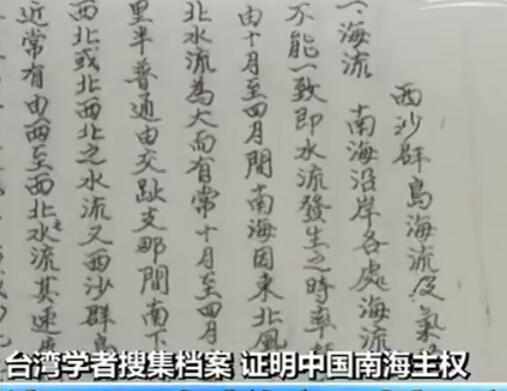 西沙群島海流及氣
一、海流　南海沿岸各處海流
不能一致即水流發生之時率
由十月至四月間南海因東北風
北水流為大而有常十月至四月
里半普通由交趾支那間南下
西北或北西北之水流又西沙群島
近常有由西至西北之水流其速
台湾学者搜集档案 证明中国南海主权